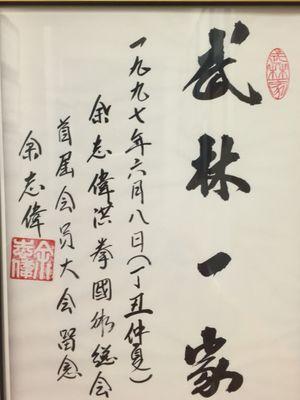 武林一家
一九九七年六月八日(丁丑仲夏)
余志偉洪拳國術總会
首届会员大会留念
余志偉
余志偉